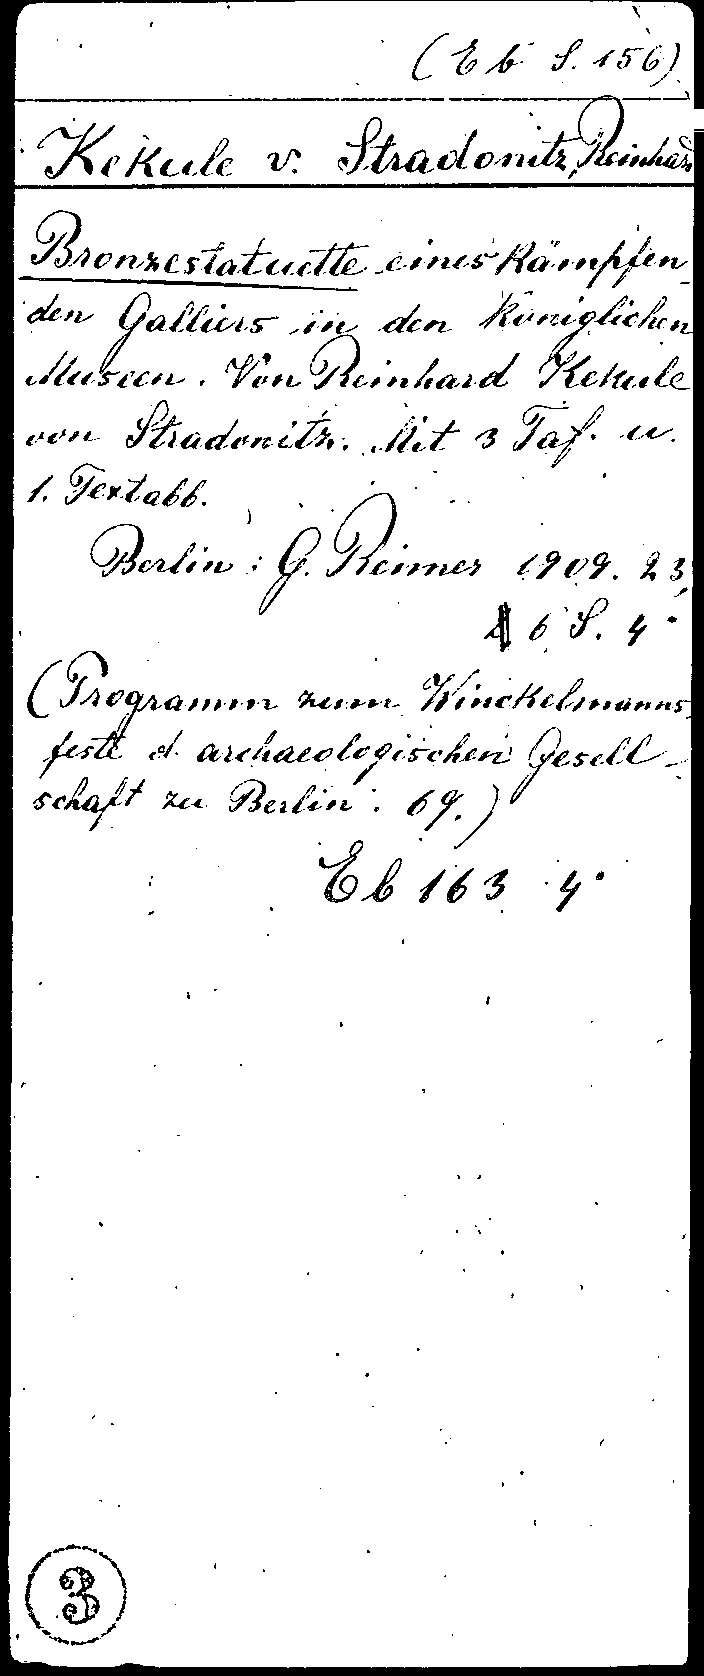 (Eb S. 156)
Kekule v. Stradonitz, Reinhard
Bronzestatuette eines kämpfen-
den Galliers in den Königlichen
Museen. Von Reinhard Kekule
von Stradonitz. Mit 3 Taf. u.
1. Textabb.
Berlin: G. Reimer 1909. 23,
6 S. 4°
(Programm zum Winckelmanns-
feste d. archaeologischen Gesell-
schaft zu Berlin. 69.)
Eb 163 4°
3